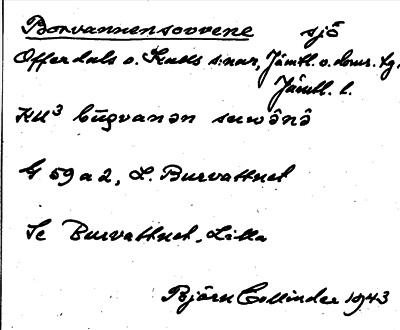 Borvannensovvene sjö
Offerdals o. Kalls s:nar, Jämtl. o. doms. tg.
Jämtl. l.
KU³ bu̅gvanən suwônô
G 59 a 2, L. Burvattnet
Se Burvattnet, Lilla
Björn Collinder 1943